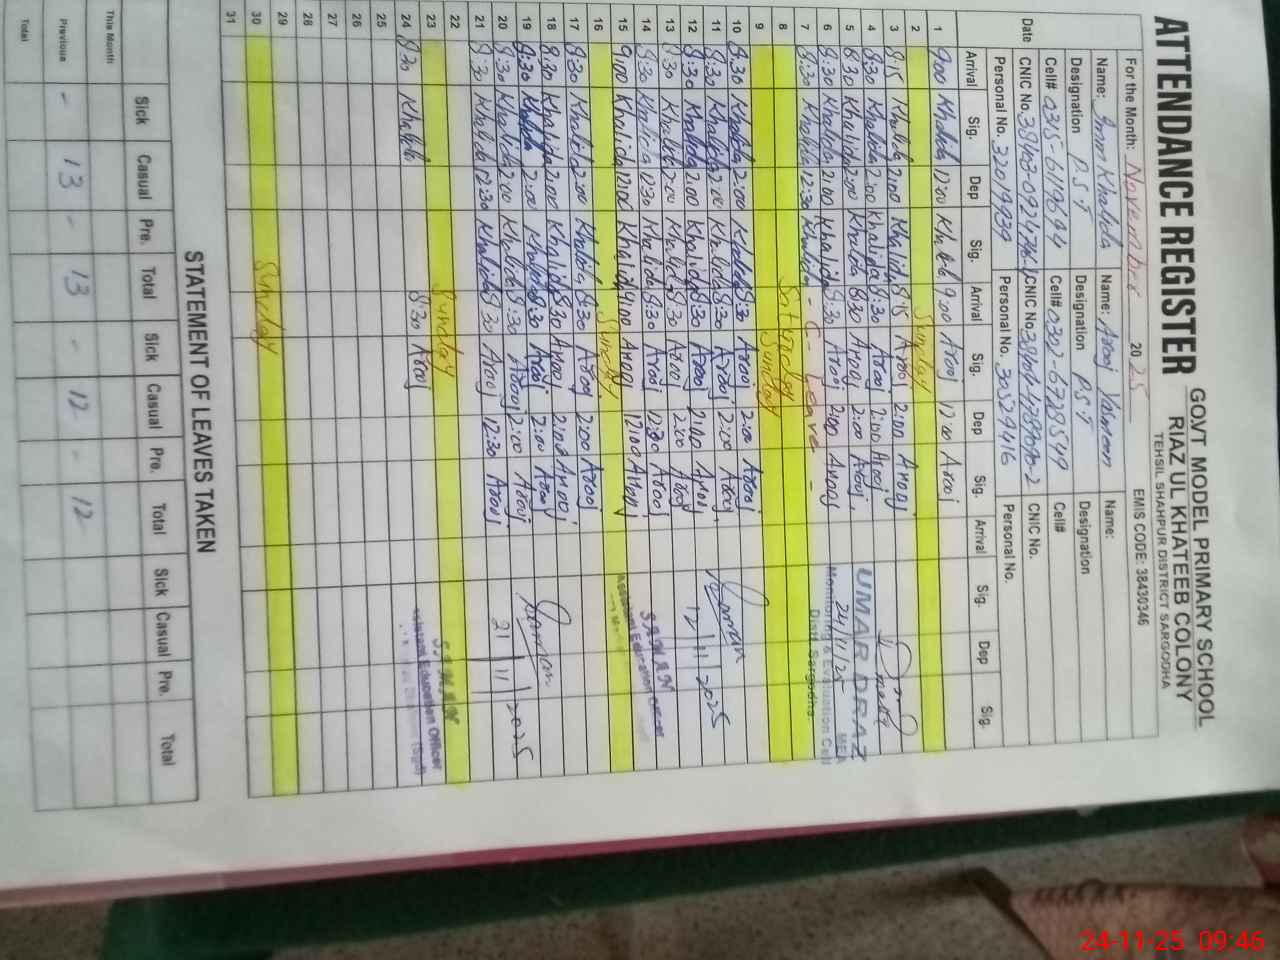 ATTENDANCE REGISTER
GOVT MODEL PRIMARY SCHOOL
RIAZ UL KHATEEB COLONY
TEHSIL SHAHPUR DISTRICT SARGODHA
For the Month: November 2025
EMIS CODE: 38430346
Name: Khalida Name: Arooj Yasmeen Name:
Designation P.S.T Designation P.S.T Designation
Cell# 0315-6119694 Cell# 0302-6728549 Cell#
CNIC No. CNIC No. CNIC No.
Personal No. Personal No. 30529416 Personal No.
Date Arrival Sig. Dep Sig. Arrival Sig. Dep Sig. Arrival Sig. Dep Sig.
1 9:00 Khalida 12:00 Khalida 9:00 Arooj 12:00 Arooj
2 Sunday
3 8:15 Khalida 2:00 Khalida 8:15 Arooj 2:00 Arooj
4 8:30 Khalida 2:00 Khalida 8:30 Arooj 2:00 Arooj
5 8:30 Khalida 2:00 Khalida 8:30 Arooj 2:00 Arooj
6 8:30 Khalida 2:00 Khalida 8:30 Arooj 2:00 Arooj
7 8:30 Khalida 12:30 Khalida - C- Leave -
8 Saturday
9 Sunday
10 8:30 Khalida 2:00 Khalida 8:30 Arooj 2:00 Arooj
11 8:30 Khalida 2:00 Khalida 8:30 Arooj 2:00 Arooj
12 8:30 Khalida 2:00 Khalida 8:30 Arooj 2:00 Arooj
13 8:30 Khalida 2:00 Khalida 8:30 Arooj 2:00 Arooj
14 8:30 Khalida 12:30 Khalida 8:30 Arooj 12:30 Arooj
15 9:00 Khalida 12:00 Khalida 9:00 Arooj 12:00 Arooj
16 Sunday
17 8:30 Khalida 2:00 Khalida 8:30 Arooj 2:00 Arooj
18 8:30 Khalida 2:00 Khalida 8:30 Arooj 2:00 Arooj
19 8:30 Khalida 2:00 Khalida 8:30 Arooj 2:00 Arooj
20 8:30 Khalida 2:00 Khalida 8:30 Arooj 2:00 Arooj
21 8:30 Khalida 12:30 Khalida 8:30 Arooj 12:30 Arooj
22
23 Sunday
24 8:30 Khalida 8:30 Arooj
25
26
27
28
29
30 Sunday
31
UMAR DRAZ
24/11/25 MEA
Monitoring & Evaluation Cell
Distt. Sargodha.
12/11/2025
SAMAN
Assistant Education Officer
21/11/2025
SAMAN
Assistant Education Officer
STATEMENT OF LEAVES TAKEN
Sick Casual Pre. Total Sick Casual Pre. Total Sick Casual Pre. Total
This Month
Previous - 13 - 13 - 12 - 12
Total
24-11-25 09:46